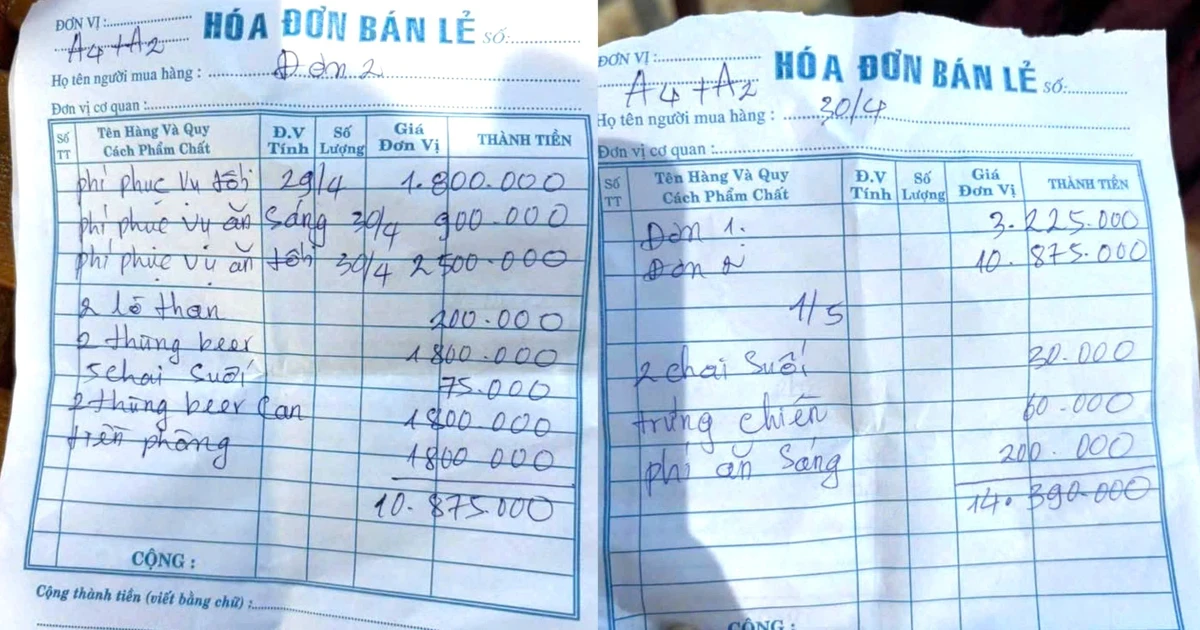 ĐƠN VỊ :
HÓA ĐƠN BÁN LẺ SỐ:
A4+A2
Họ tên người mua hàng : Đơn 2
Đơn vị cơ quan :
Số TT Tên Hàng Và Quy Cách Phẩm Chất Đ.V Tính Số Lượng Giá Đơn Vị THÀNH TIỀN
phí phục vụ tối 29/4 1.800.000
phí phục vụ ăn sáng 30/4 900.000
phí phục vụ ăn tối 30/4 2500.000
2 lò than 200.000
2 thùng beer 1800.000
5 chai suối 75.000
2 thùng beer can 1800.000
tiền phòng 1800 000
10.875.000
CỘNG :
Cộng thành tiền (viết bằng chữ) :
ĐƠN VỊ :
HÓA ĐƠN BÁN LẺ SỐ:
A4+A2
Họ tên người mua hàng : 30/4
Đơn vị cơ quan :
Số TT Tên Hàng Và Quy Cách Phẩm Chất Đ.V Tính Số Lượng Giá Đơn Vị THÀNH TIỀN
Đơn 1. 3.225.000
Đơn 2 10.875.000
1/5
2 chai suối 30.000
trứng chiên 60.000
phí ăn sáng 200.000
14.390.000
CỘNG :